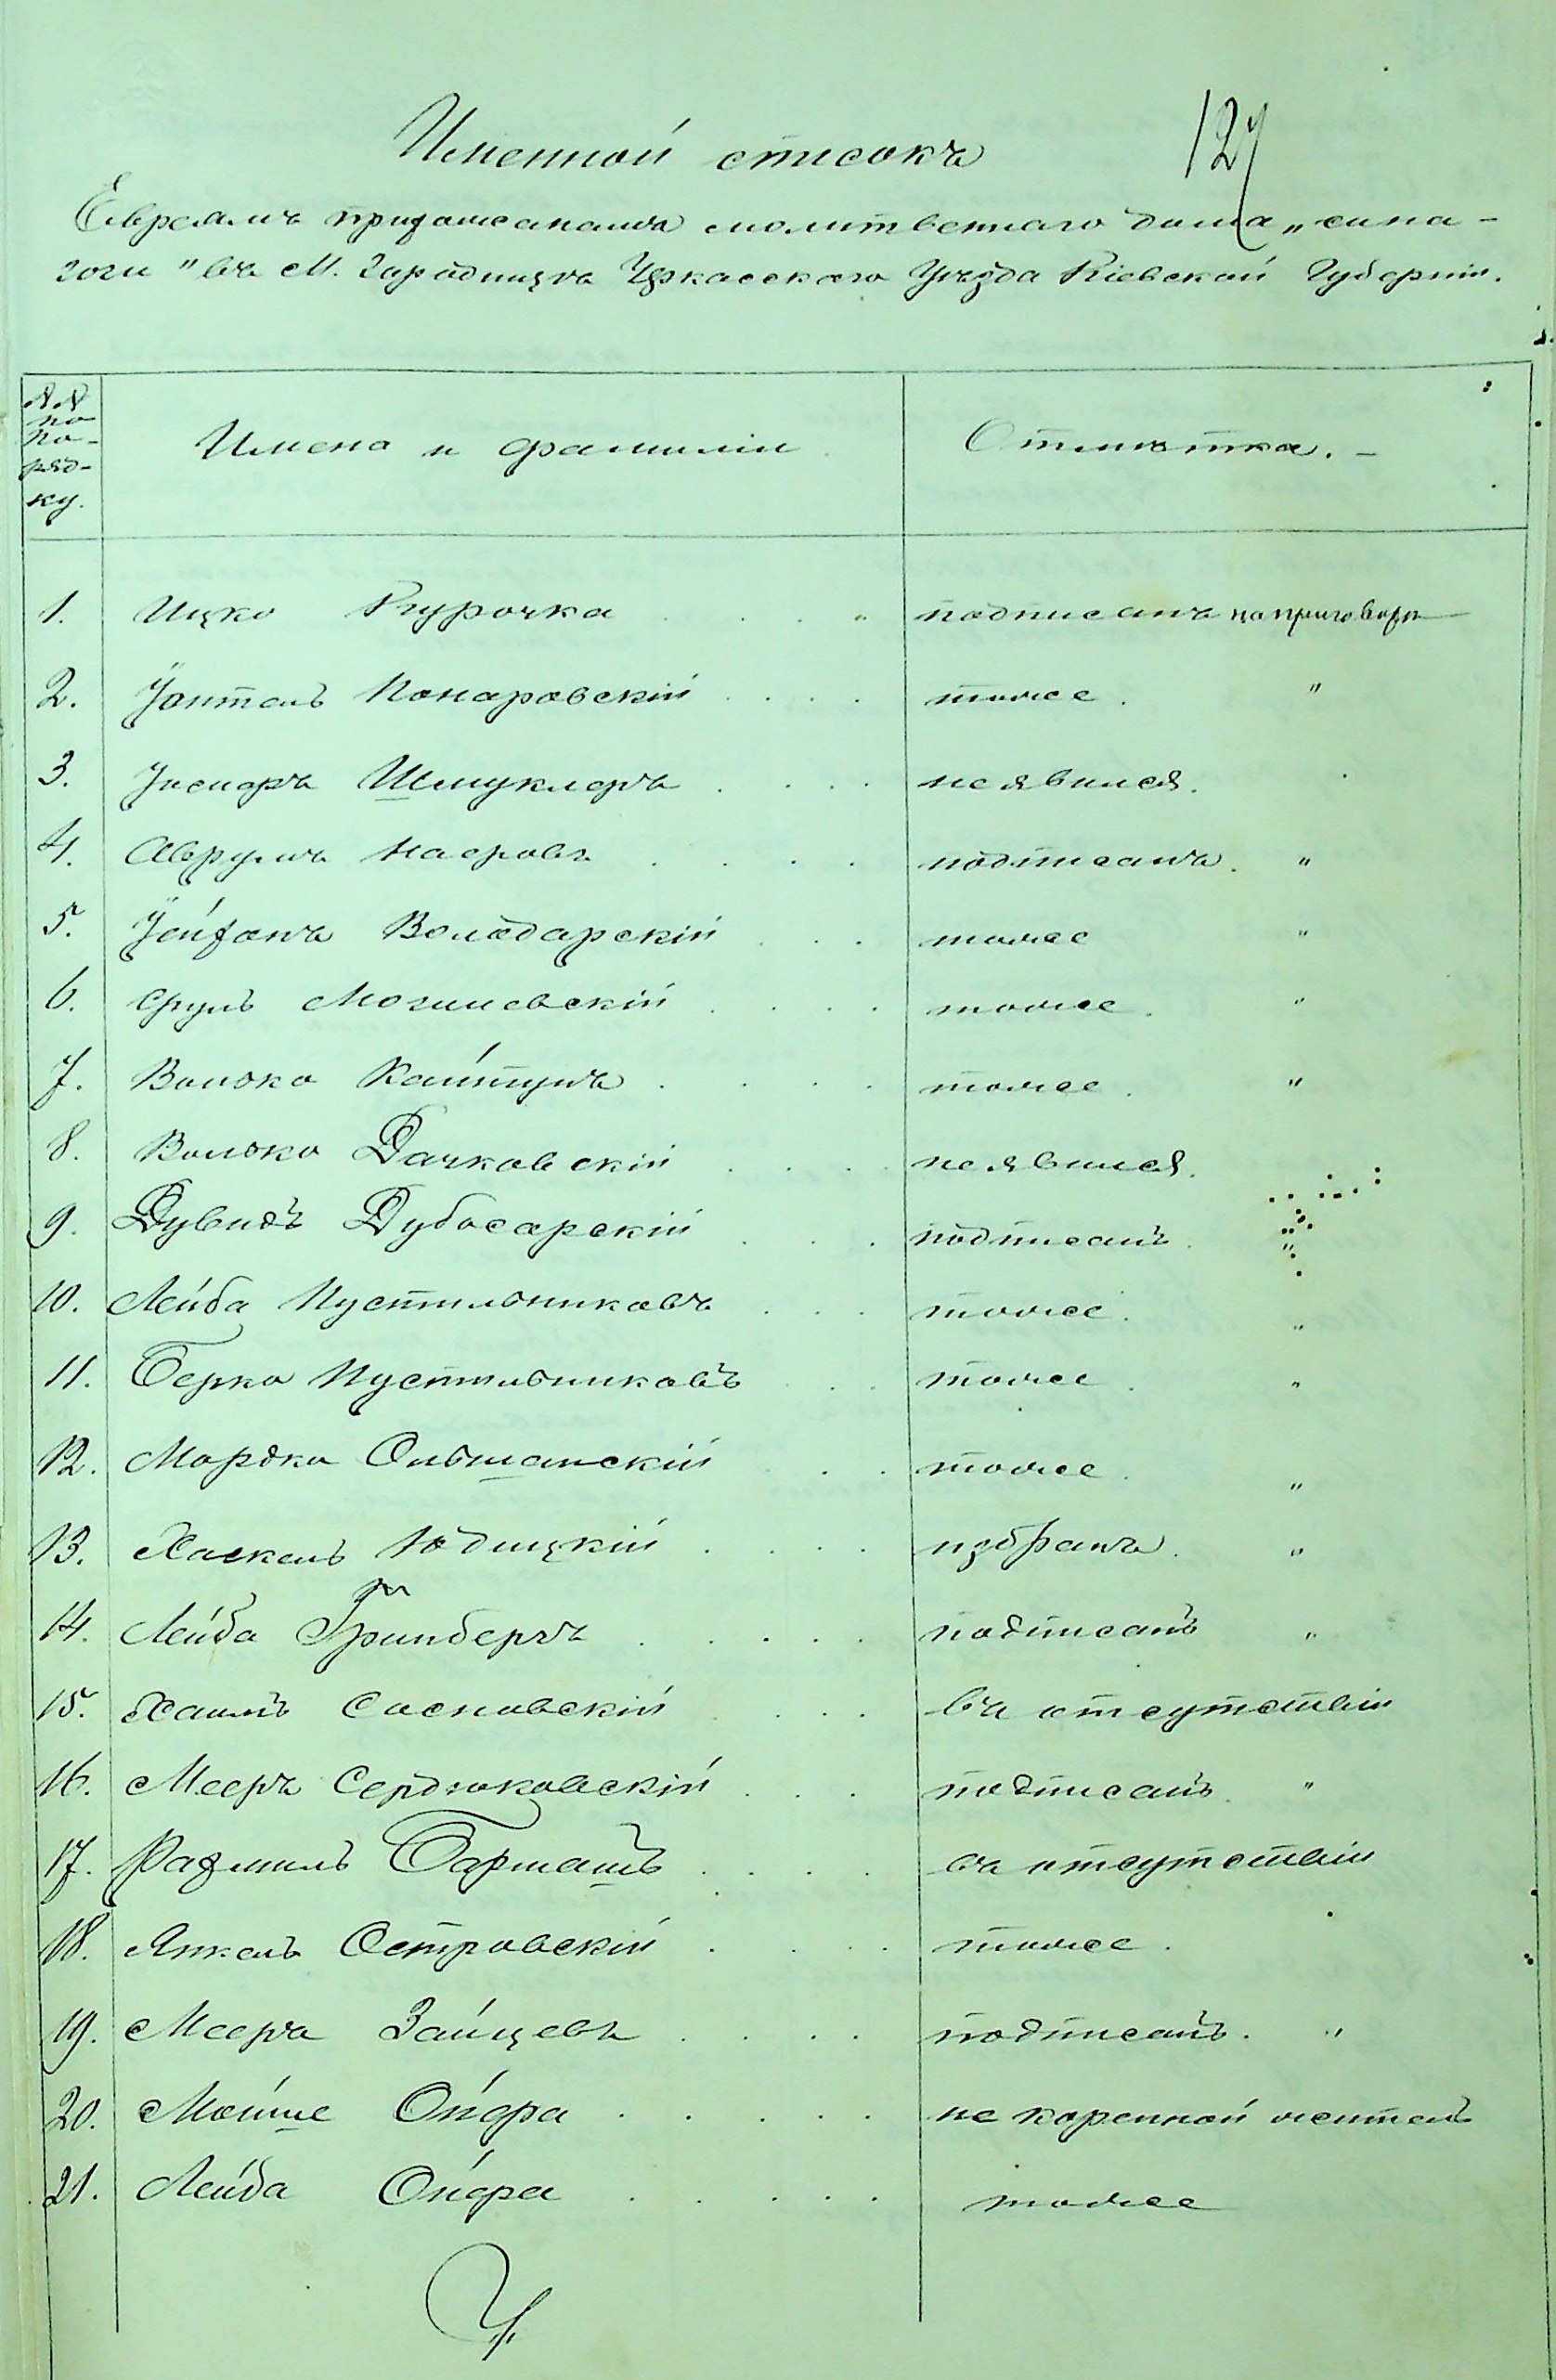 Именной списокъ
127
Евреямъ прихожанамъ молитвеннаго дома „сина-
гоги" въ М. Городищѣ Черкасскаго Уѣзда Кіевской Губерніи.
№№
по
по-
ряд-
ку.
Имена и фамиліи
Отмѣтка. -
1. Ицко Курочка . . . " подписанъ на приговорѣ
2. Понаровскій . . . . тоже. "
3. Шмуклеръ . . . . неявился.
4. Аврумъ . . . . подписанъ. "
5. Володарскій . . . тоже "
6. Сруль Могилевскій . . . . тоже. "
7. Волько Кайтунъ . . . тоже. "
8. Волько Дачковскій . . . . неявился.
9. Дувидъ Дубосарскій . . . подписанъ. "
10. Лейба Пустильниковъ . . . тоже. "
11. Берко Пустильниковъ . . тоже. "
12. Мордко Ольшанскій . . тоже. "
13. Хаскель Юдицкій . . . . избранъ. "
14. Лейба Гринбергъ . . . . . подписанъ "
15. Хаимъ Сосновскій . . . . въ отсутствіи
16. Мееръ Сердюковскій . . . подписанъ. "
17. Рахмиль Барташъ . . . . въ отсутствіи
18. Янкель Островскій . . . . тоже.
19. Мееръ Зайцевъ . . . . подписанъ. "
20. Мойше Опёра . . . . . не коренной житель
21. Лейба Опёра . . . . . тоже